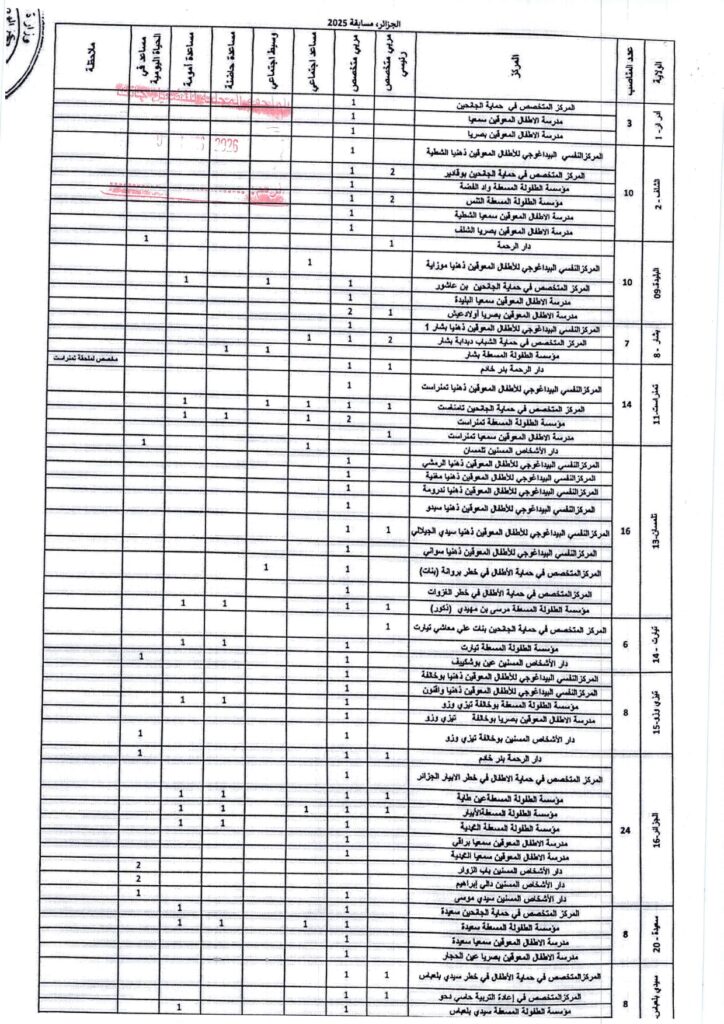 الجزائر، مسابقة 2025
الولاية عدد المناصب المركز مربي متخصص رئيسي مربي متخصص مساعد اجتماعي وسيط اجتماعي مساعدة حاضنة مساعدة أمومة مساعد في الحياة اليومية ملاحظة
أدرار - 1 3
المركز المتخصص في حماية الجانحين 1
مدرسة الاطفال المعوقين سمعيا 1
مدرسة الاطفال المعوقين بصريا 1
2026
الشلف - 2 10
المركزالنفسي البيداغوجي للأطفال المعوقين ذهنيا الشطية 1
المركز المتخصص في حماية الجانحين بوقادير 2 1
مؤسسة الطفولة المسعفة واد الفضة 1
مؤسسة الطفولة المسعفة التنس 2 1
مدرسة الاطفال المعوقين سمعيا الشطية 1
مدرسة الاطفال المعوقين بصريا الشلف 1
البليدة-09 10
دار الرحمة 1 1
المركزالنفسي البيداغوجي للأطفال المعوقين ذهنيا موزاية 1
المركز المتخصص في حماية الجانحين بن عاشور 1 1 1
مدرسة الاطفال المعوقين سمعيا البليدة 1
مدرسة الاطفال المعوقين بصريا أولادعيش 1 2
بشار - 8 7
المركزالنفسي البيداغوجي للأطفال المعوقين ذهنيا بشار 1 1
المركز المتخصص في حماية الشباب دبدابة بشار 2 1 1
مؤسسة الطفولة المسعفة بشار 1 1
تمنراست-11 14
دار الرحمة بئر خادم 1 1 مخصص لملحقة تمنراست
المركزالنفسي البيداغوجي للأطفال المعوقين ذهنيا تمنراست 1
المركز المتخصص في حماية الجانحين تامناست 1 1 1 1 1
مؤسسة الطفولة المسعفة تمنراست 2 1 1 1
مدرسة الاطفال المعوقين سمعيا تمنراست 1
تلمسان-13 16
دار الأشخاص المسنين تلمسان 1 1
المركزالنفسي البيداغوجي للأطفال المعوقين ذهنيا الرمشي 1
المركزالنفسي البيداغوجي للأطفال المعوقين ذهنيا مغنية 1
المركزالنفسي البيداغوجي للأطفال المعوقين ذهنيا ندرومة 1
المركزالنفسي البيداغوجي للأطفال المعوقين ذهنيا سبدو 1
المركزالنفسي البيداغوجي للأطفال المعوقين ذهنيا سيدي الجيلالي 1 1
المركزالنفسي البيداغوجي للأطفال المعوقين ذهنيا سواني 1
المركزالمتخصص في حماية الأطفال في خطر بروانة (بنات) 1 1
المركزالمتخصص في حماية الأطفال في خطر الغزوات 1
مؤسسة الطفولة المسعفة مرسى بن مهيدي (ذكور) 1 1 1 1
تيارت - 14 6
المركز المتخصص في حماية الجانحين بنات علي معاشي تيارت 1
مؤسسة الطفولة المسعفة تيارت 1 1 1
دار الأشخاص المسنين عين بوشكييف 1 1
تيزي وزو-15 8
المركزالنفسي البيداغوجي للأطفال المعوقين ذهنيا بوخالفة 1
المركزالنفسي البيداغوجي للأطفال المعوقين ذهنيا واقنون 1
مؤسسة الطفولة المسعفة بوخالفة تيزي وزو 1 1 1
مدرسة الاطفال المعوقين بصريا بوخالفة تيزي وزو 1
دار الأشخاص المسنين بوخالفة تيزي وزو 1 1
الجزائر-16 24
دار الرحمة بئر خادم 1 1 1
المركز المتخصص في حماية الاطفال في خطر الابيار الجزائر 1
مؤسسة الطفولة المسعفةعين طاية 1 1 1 1
مؤسسة الطفولة المسعفةالأبيار 1 1 1 1 1
مؤسسة الطفولة المسعفة 1 1 1
مدرسة الاطفال المعوقين سمعيا براقي 1
مدرسة الاطفال المعوقين سمعيا 1
دار الأشخاص المسنين باب الزوار 2
دار الأشخاص المسنين دالي إبراهيم 2
دار الأشخاص المسنين سيدي موسى 1 1
سعيدة - 20 8
المركز المتخصص في حماية الجانحين سعيدة 1 1
مؤسسة الطفولة المسعفة سعيدة 1 1 1 1
مدرسة الاطفال المعوقين سمعيا سعيدة 1
مدرسة الاطفال المعوقين بصريا عين الحجار 1
سيدي بلعباس- 8
المركزالمتخصص في حماية الأطفال في خطر سيدي بلعباس 1 1
المركزالمتخصص في إعادة التربية حاسي دحو 1 1
مؤسسة الطفولة المسعفة سيدي بلعباس 1 1